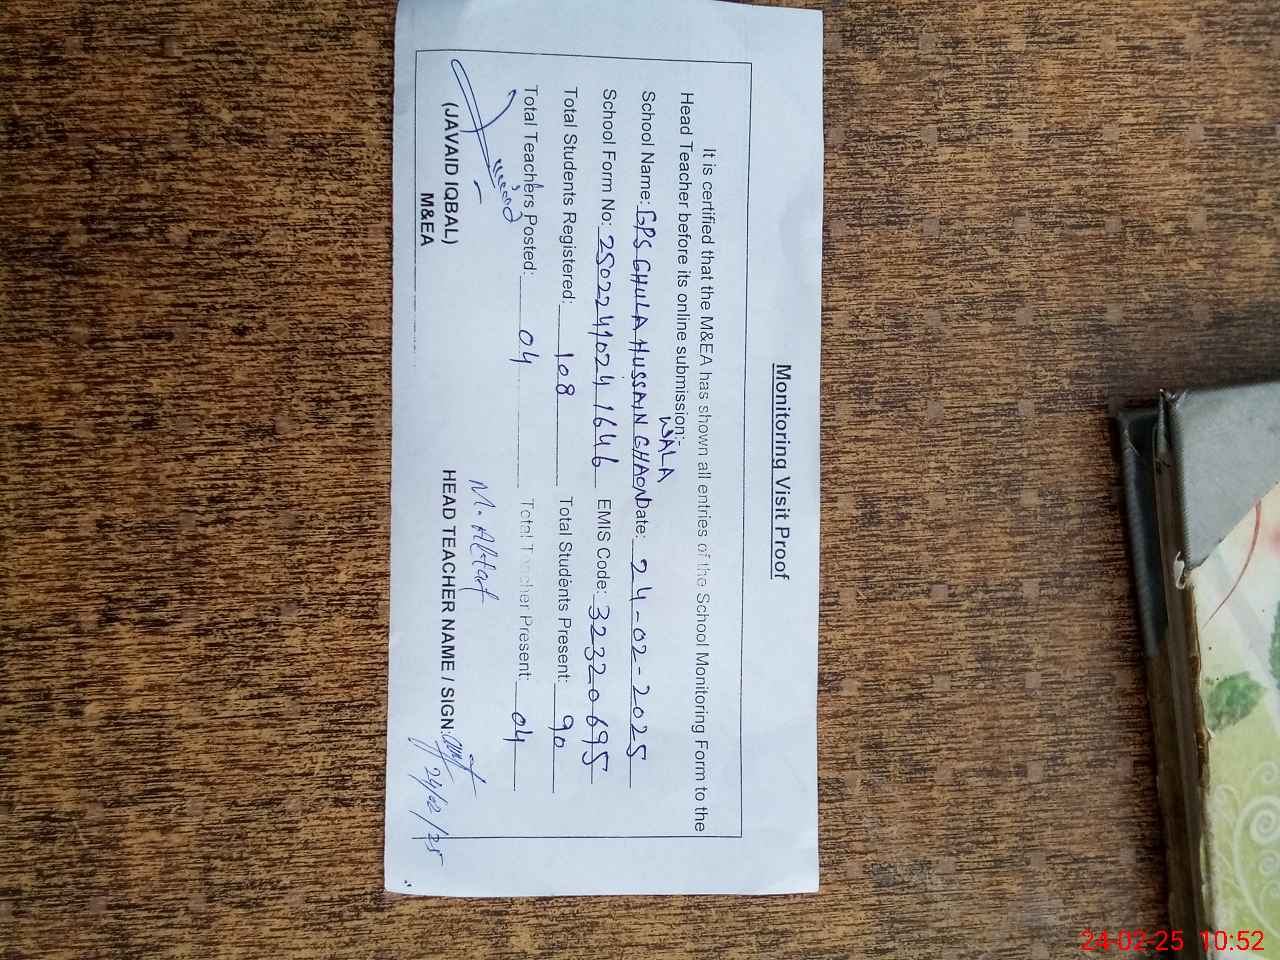 Monitoring Visit Proof
It is certified that the M&EA has shown all entries of the School Monitoring Form to the
Head Teacher before its online submission:-
WALA
School Name: GPS GHULA HUSSAIN GHAON Date: 24-02-2025
School Form No: 2502241024 1646 EMIS Code: 32320695
Total Students Registered: 108 Total Students Present: 90
Total Teachers Posted: 04 Total Teacher Present: 04
M. Altaf
(JAVAID IQBAL) HEAD TEACHER NAME / SIGN:
M&EA
24/02/25
24-02-25 10:52